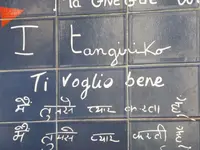 I tangiriko
Ti voglio bene
मैं तुमसे प्यार करता हूँ
मैं तुमसे प्यार करती हूँ